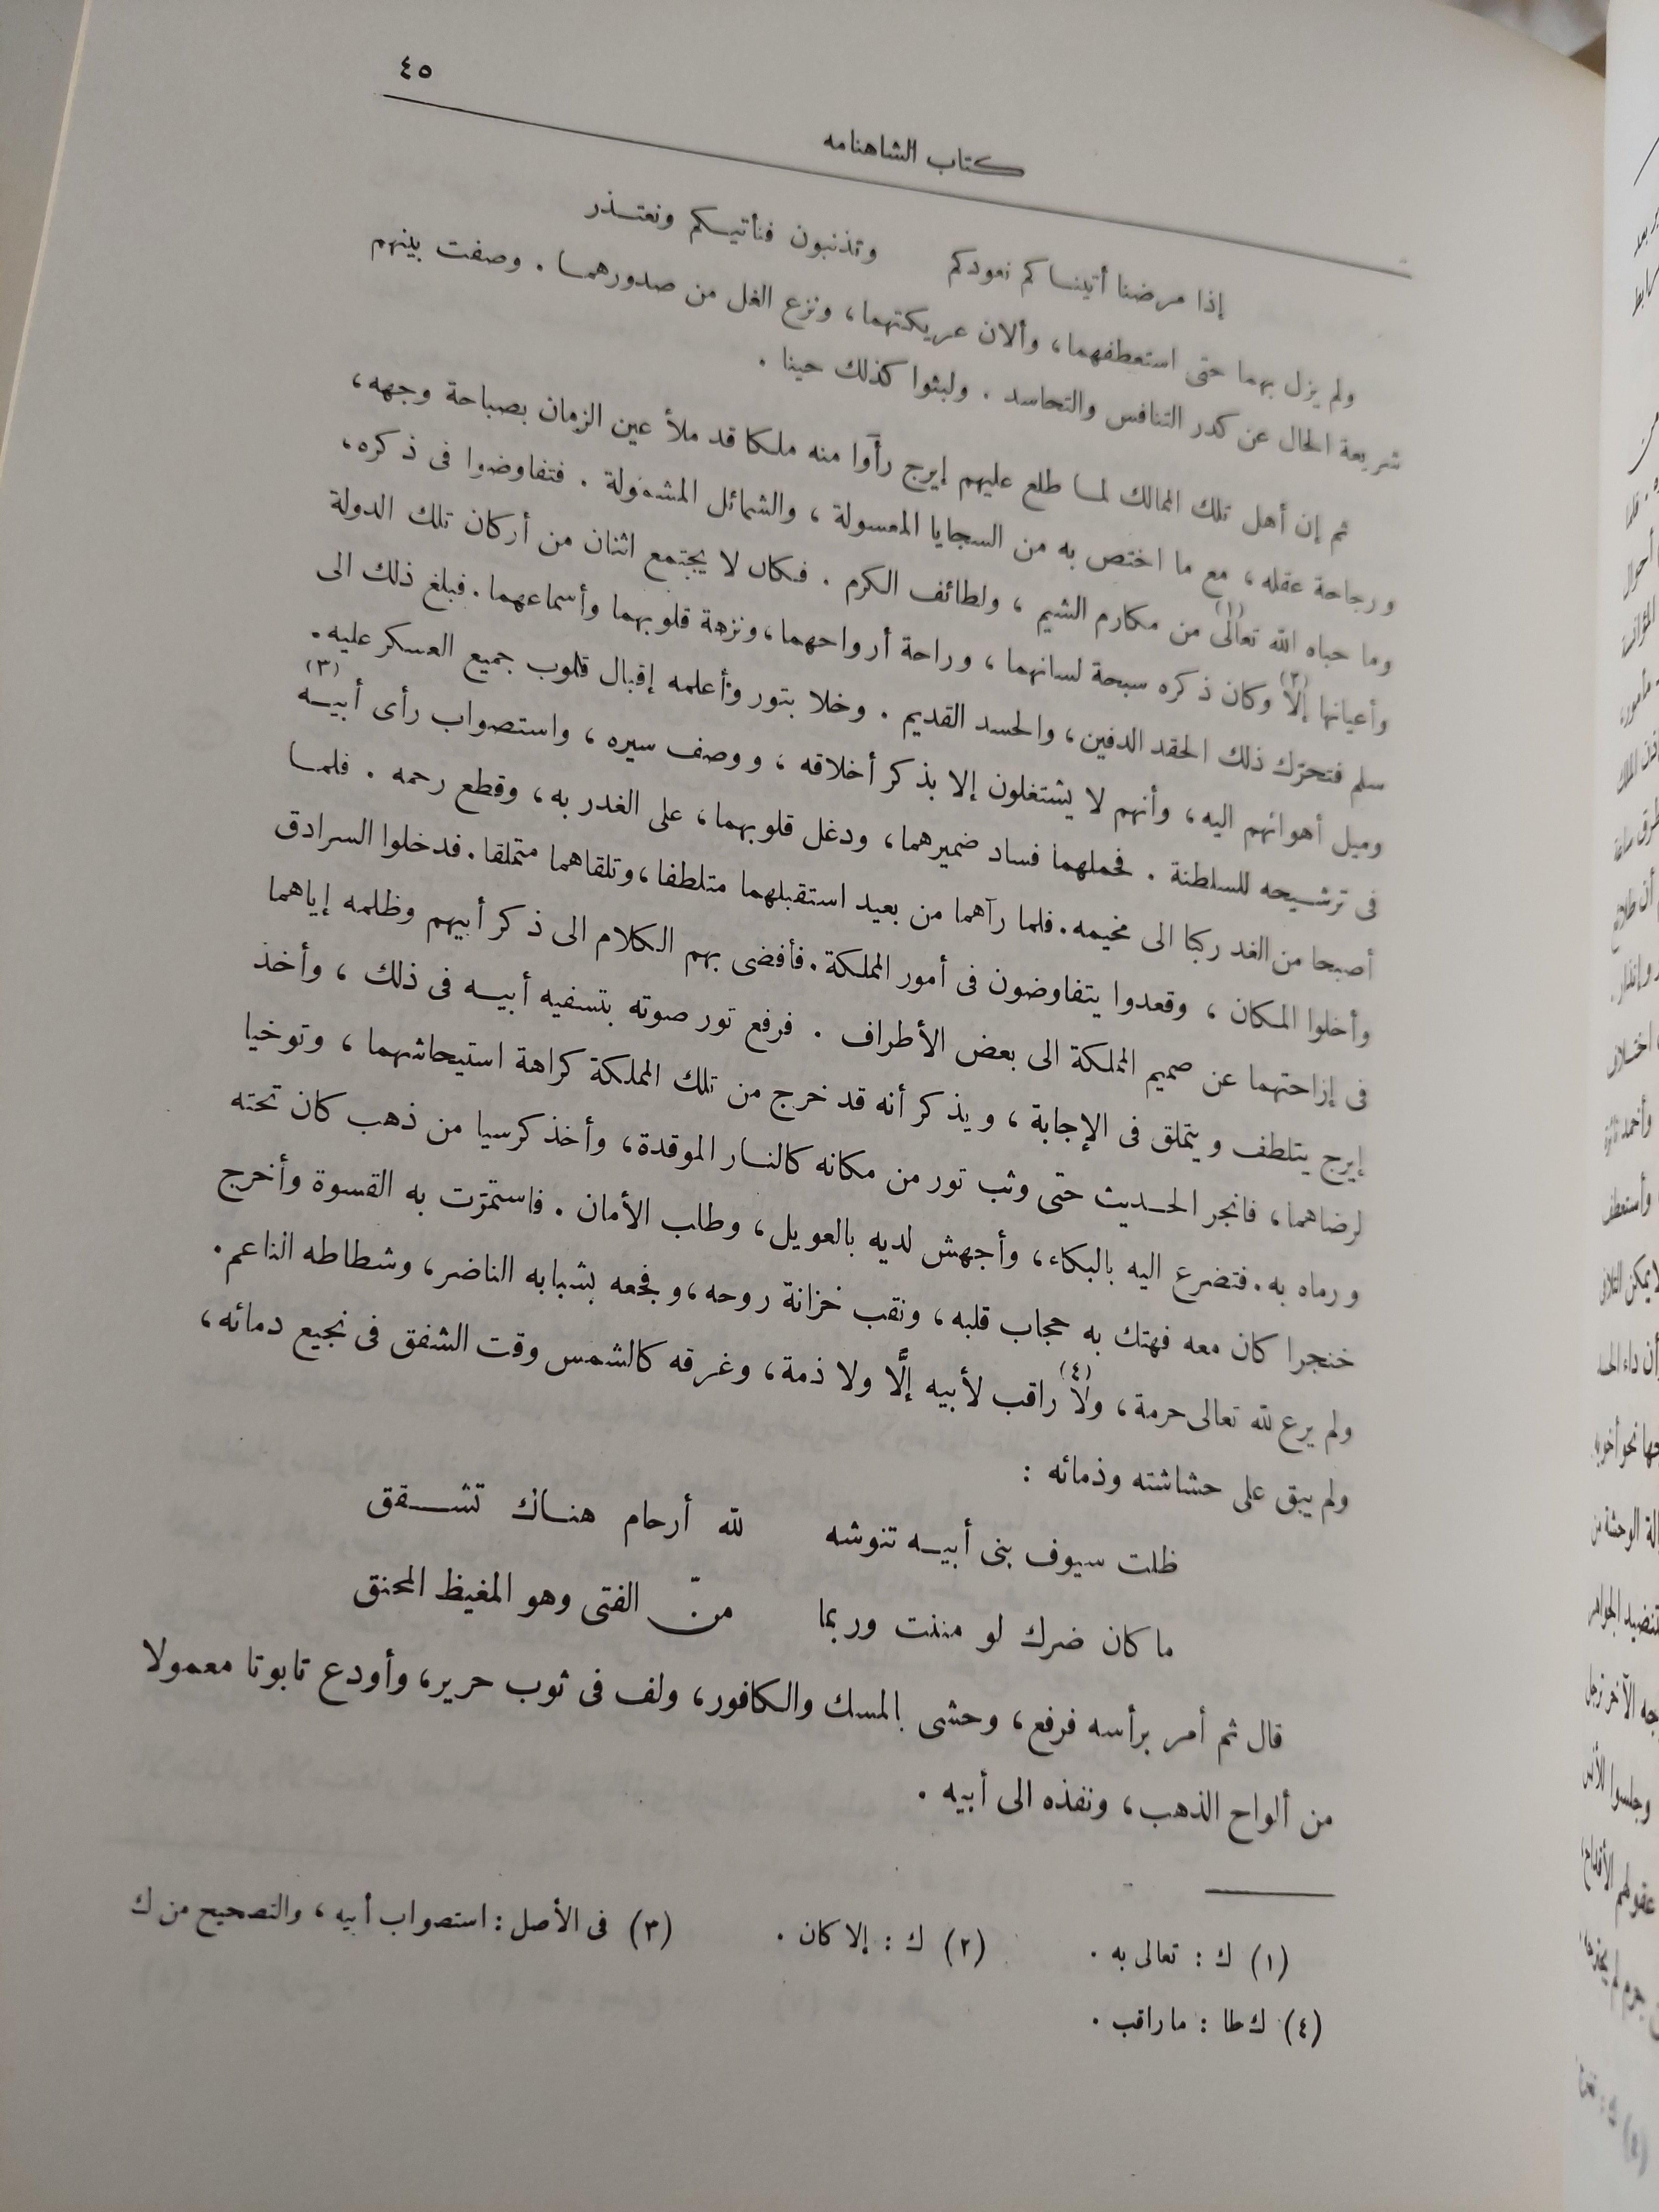 ٤٥
كتاب الشاهنامه
إذا مرضنا أتيناكم نعودكم وتذنبون فنأتيكم ونعتذر
ولم يزل بهما حتى استعطفهما، وألان عريكتهما، ونزع الغل من صدورهما . وصفت بينهم
شريعة الحال عن كدر التنافس والتحاسد . ولبثوا كذلك حينا .
ثم إن أهل تلك الممالك لما طلع عليهم إيرج رأوا منه ملكا قد ملأ عين الزمان بصباحة وجهه،
ورجاحة عقله، مع ما اختص به من السجايا المعسولة، والشمائل المشمولة . فتفاوضوا فى ذكره،
وما حباه الله تعالى(١) من مكارم الشيم، ولطائف الكرم . فكان لا يجتمع اثنان من أركان تلك الدولة
وأعيانها إلا(٢) وكان ذكره سبحة لسانهما، وراحة أرواحهما، ونزهة قلوبهما وأسماعهما . فبلغ ذلك الى
سلم فتحرّك ذلك الحقد الدفين، والحسد القديم . وخلا بتور وأعلمه إقبال قلوب جميع العسكر عليه .
وميل أهوائهم اليه، وأنهم لا يشتغلون إلا بذكر أخلاقه، ووصف سيره، واستصواب رأى أبيه(٣)
فى ترشيحه للسلطنة . فحملهما فساد ضميرهما، ودغل قلوبهما، على الغدر به، وقطع رحمه . فلما
أصبحا من الغد ركبا الى مخيمه . فلما رآهما من بعيد استقبلهما متلطفا، وتلقاهما متملقا . فدخلوا السرادق
وأخلوا المكان، وقعدوا يتفاوضون فى أمور المملكة . فأفضى بهم الكلام الى ذكر أبيهم وظلمه إياهما
فى إزاحتهما عن صميم المملكة الى بعض الأطراف . فرفع تور صوته بتسفيه أبيه فى ذلك، وأخذ
إيرج يتلطف ويتملق فى الإجابة، ويذكر أنه قد خرج من تلك المملكة كراهة استيحاشهما، وتوخيا
لرضاهما، فانجر الحديث حتى وثب تور من مكانه كالنار الموقدة، وأخذ كرسيا من ذهب كان تحته
ورماه به . فتضرع اليه بالبكاء، وأجهش لديه بالعويل، وطلب الأمان . فاستمرّت به القسوة وأخرج
خنجرا كان معه فهتك به حجاب قلبه، ونقب خزانة روحه، وفجعه بشبابه الناضر، وشطاطه الناعم .
ولم يرع لله تعالى حرمة، ولا(٤) راقب لأبيه إلًّا ولا ذمة، وغرقه كالشمس وقت الشفق فى نجيع دمائه،
ولم يبق على حشاشته وذمائه :
ظلت سيوف بنى أبيه تنوشه لله أرحام هناك تشقق
ما كان ضرك لو مننت وربما منّ الفتى وهو المغيظ المحنق
قال ثم أمر برأسه فرفع، وحشى بالمسك والكافور، ولف فى ثوب حرير، وأودع تابوتا معمولا
من ألواح الذهب، ونفذه الى أبيه .
(١) ك : تعالى به . (٢) ك : إلا كان . (٣) فى الأصل : استصواب أبيه، والتصحيح من ك
(٤) ك طا : ما راقب .